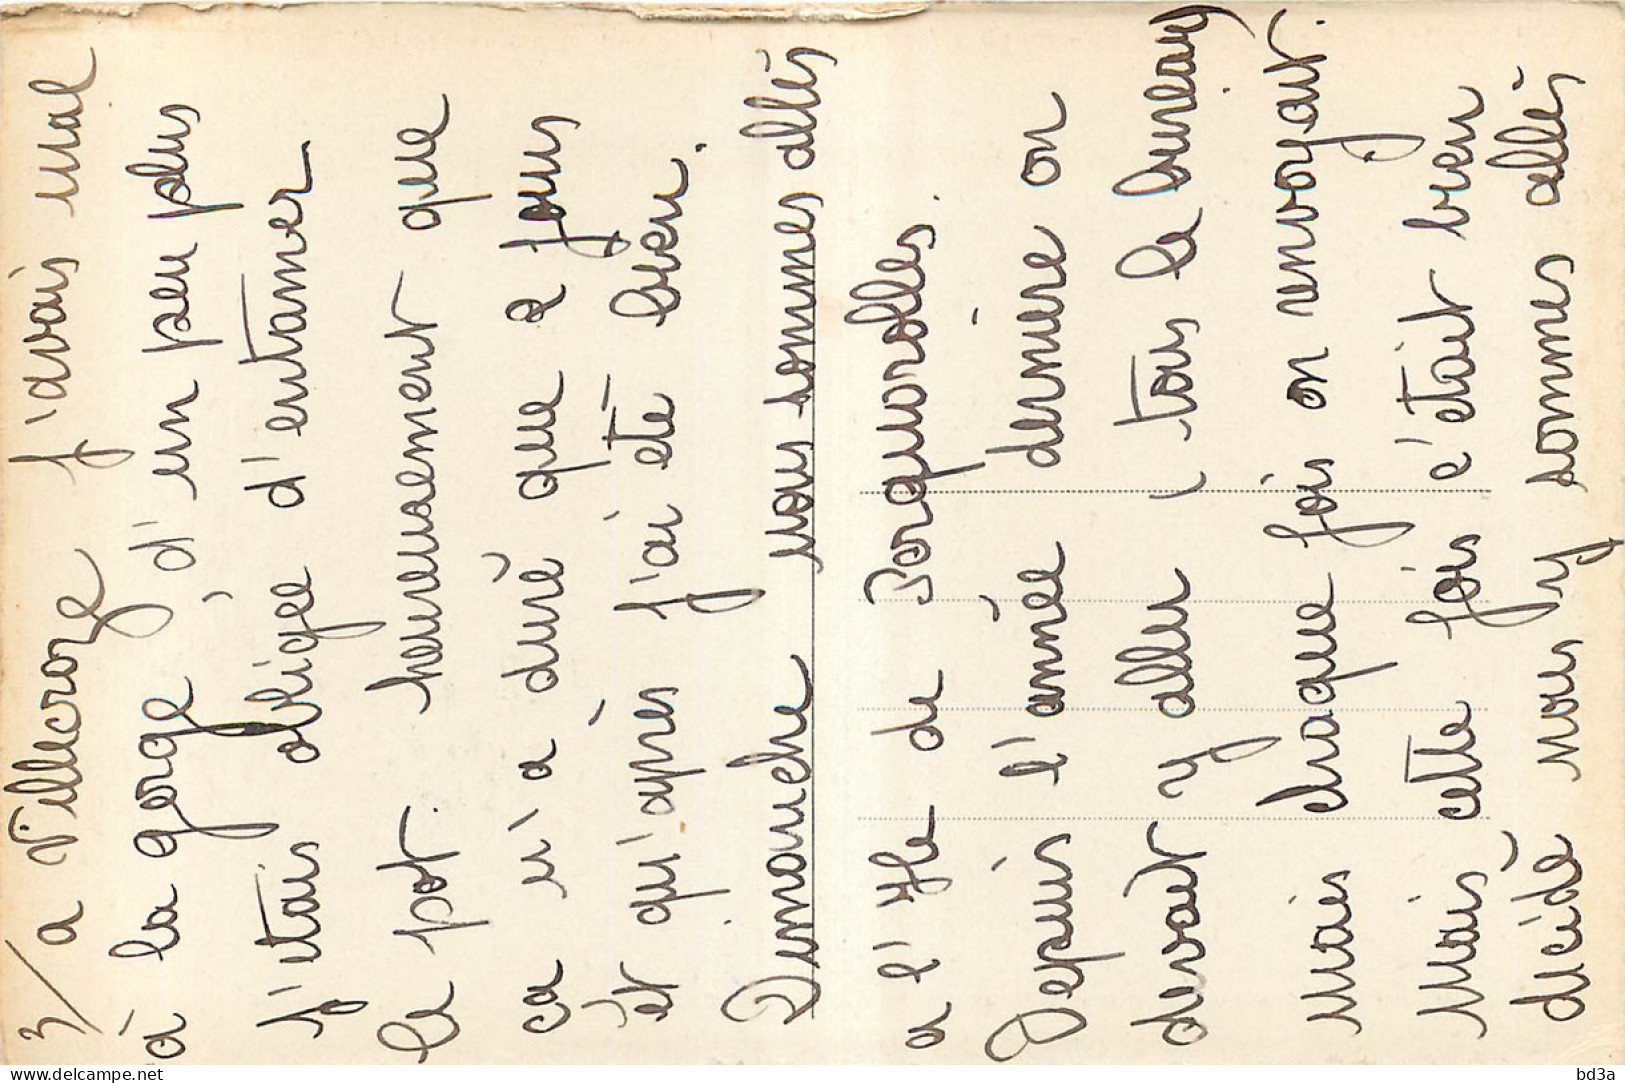 3/ a Villecroze j'avais mal
à la gorge, d'un peu plus
j'étais obligée d'entamer
le pot. heureusement que
ça n'a duré que 2 jours
et qu'après j'ai été bien.
Dimanche nous sommes allés
a l'Ile de Porquerolles.
Depuis l'année dernière on
devait y aller (tous le bureau)
mais chaque fois on renvoyait.
Mais cette fois c'était bien
décidé nous y sommes allés
www.delcampe.net
bd3a